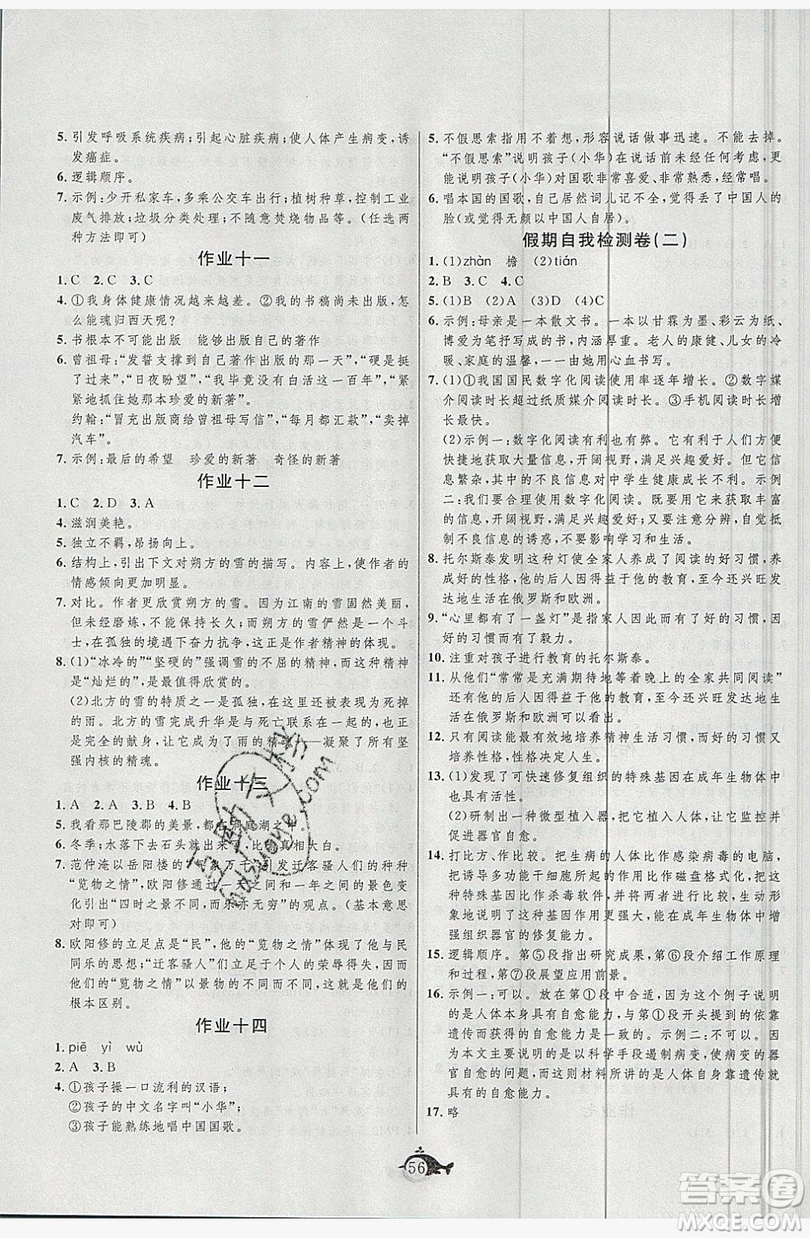 5. 引发呼吸系统疾病;引起心脏疾病;使人体产生病变,诱
发癌症。
6. 逻辑顺序。
7. 示例:少开私家车,多乘公交车出行;植树种草,控制工业
废气排放;垃圾分类处理;不随意焚烧物品。(任选两
种方法即可)
作业十一
1. C 2. C 3. C
4. ①我身体健康情况越来越差。②我的书稿尚未出版,怎
么能魂归西天呢?
5. 书根本不可能出版 能够出版自己的著作
6. 曾祖母:“发誓支撑到自己著作出版的那一天”,“硬是挺
了过来”,“日夜盼望”,“我毕竟没有白活这一百年”,“紧
紧地抓住她那本珍爱的新著”
约翰:“冒充出版商给曾祖母写信”,“每月都汇款”,“卖掉
汽车”。
7. 示例:最后的希望 珍爱的新著 奇怪的新著
作业十二
1. C 2. D 3. A
4. 滋润美艳。
5. 独立不羁,昂扬向上。
6. 结构上,引出下文对朔方的雪的描写。内容上,使作者的
情感倾向更加明显。
7. 对比。作者更欣赏朔方的雪。因为江南的雪固然美丽,
但未经磨炼,不能保持长久;而朔方的雪俨然是一个斗
士,在孤独的境遇下奋力抗争,这是作者精神的体现。
8. (1)“冰冷的”“坚硬的”强调雪的不屈精神,而这种精神
是“灿烂的”,是最值得欣赏的。
(2)北方的雪的特质之一是孤独,在这里被表现为死掉
的雨。北方的雪完成升华是与死亡联系在一起的,那是
完全的献身,让它成为雨的精魂——凝聚了所有坚
强内核的精魂。
作业十三
1. A 2. A 3. B 4. B
5. 我看那巴陵郡的美景,都在洞庭湖之上。
6. 冬季;水落下去石头就出来,比喻真相大白。
7. 范仲淹以岳阳楼的气象万千引发迁客骚人们的种种
“览物之情”,欧阳修通过一日之间和一年之间的景色变
化引出“四时之景不同,而乐亦无穷”的观点。(基本意思
对即可)
8. 欧阳修的立足点是“民”,他的“览物之情”体现了他与民
同乐的思想境界,“迁客骚人”们关注个人的荣辱得失,他
们的“览物之情”以景物的不同而不同,这就是他们的
根本区别。
作业十四
1. piē yì wù
2. A 3. B
4. ①孩子操一口流利的汉语;
②孩子的中文名字叫“小华”;
③孩子能熟练地唱中国国歌。
5. 不假思索指用不着想,形容说话做事迅速。不能去掉。
“不假思索”说明孩子(小华)在说话前未经任何考虑,更
能说明孩子(小华)对国歌非常喜爱、非常熟悉,经常唱。
6. 唱本国的国歌,居然词儿记不全,我觉得丢了中国人的
脸(或觉得无颜以中国人自居)。
假期自我检测卷(二)
1. (1)zhàn 檐 (2)tián
2. B 3. C 4. C
5. (1)B (2)A (3)D (4)C
6. 示例:母亲是一本散文书。一本以甘霖为墨、彩云为纸、
博爱为笔抒写成的书,内涵厚重。老人的康健、儿女的冷
暖、家庭的温馨,一一由她用心血书写。
7. (1)①我国国民数字化阅读使用率逐年增长。②数字媒
介阅读时间增长超过纸质媒介阅读时间。③手机阅读时
间增长。
(2)示例一:数字化阅读有利也有弊。数字化阅读方便
快捷地获得大量信息,开阔视野。但是由于信息庞杂,其
中的不良信息也对中学生健康成长有害。示例
二:我们要合理使用数字化阅读。既要从中获取丰富
的信息,开阔视野,满足兴趣爱好;又要注意分辨,抵
制不良信息的诱惑,不要影响学习和生活。
8. 托尔斯泰发明这种灯使全家人养成了阅读的好习惯,养
成好的性格,他的后代得益于他的教育,至今还兴旺发
达地生活在俄罗斯和欧洲。
9. “心里都有了一盏灯”是指家人因此而有了好的习惯,因
好的习惯而有了毅力。
10. 注重对孩子进行教育的托尔斯泰。
11. 从他们“常常是充满期待地等着晚上的全家共同阅读”
和后人因得益于他的教育,至今还兴旺发达地生
活在俄罗斯和欧洲可以看出。
12. 只有阅读能最有效地培养精神生活习惯,习惯决定性
格,性格决定人生。
13. (1)发现了可快速修复组织的特殊基因在成年生物体中
也存在。
(2)研制出一种微型植入器,把它植入人体,让它监控并
促进器官自愈。
14. 打比方、作比较。把生病的人体比作感染病毒的电脑,
把诱导多功能干细胞所起的作用比作磁盘格式化,把这
种特殊基因比作杀毒软件,并把作用进行比较,生动形
象地说明了这种基因作用更强大,能在成年生物体中增
强组织器官的修复能力。
15. 逻辑顺序。第⑤段指出研究成果,第⑥段介绍工作原理
和过程,第⑦段展望应用前景。
16. 示例一:可以。放在第①段后面,因为这个例子说明的
是人体本身具有自愈能力,与第①段开头提到的依靠
遗传而获得的自愈能力相一致。示例二:不可以。因
为本文主要说明的是以科学手段遏制病变,使病变器
官自愈的问题,而这则材料所讲的是人体自身靠遗传就
具有的自愈能力。
17. 略
56
答案圈
MXQE.COM